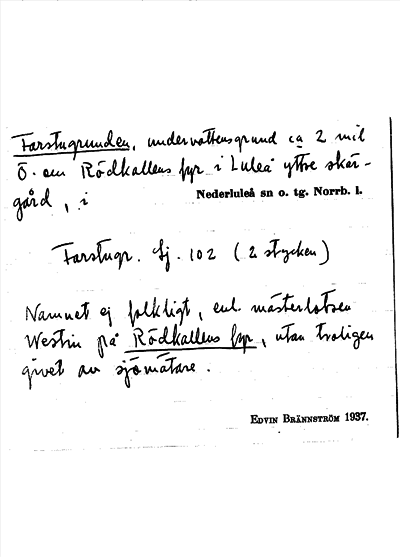 Farstugrunden, undervattensgrund ca 2 mil
Ö. om Rödkallens fyr i Luleå yttre skär-
gård, i Nederluleå sn o. tg. Norrb. l.
Farstugr. Sj. 102 (2 stycken)
Namnet ej folkligt, enl. mästerlotsen
Westin på Rödkallens fyr, utan troligen
givet av sjömätare.
EDVIN BRÄNNSTRÖM 1937.